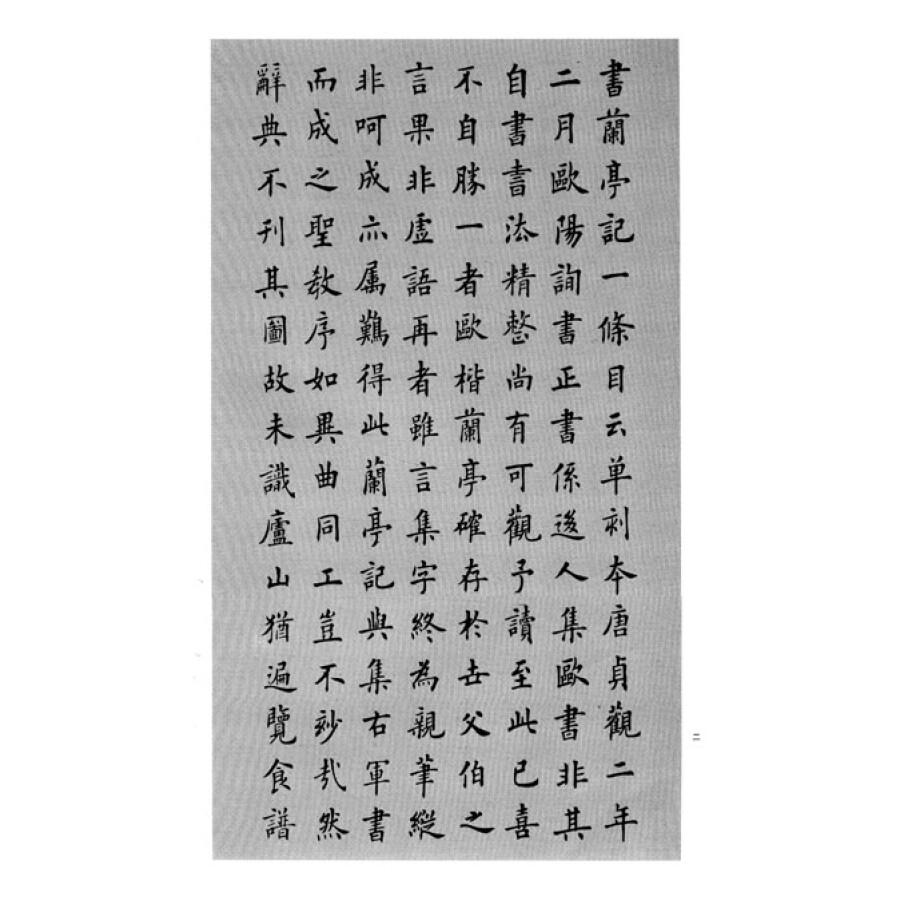 書蘭亭記一條目云单刻本唐貞觀二年
二月歐陽詢書正書係後人集歐書非其
自書書法精整尚有可觀予讀至此已喜
不自勝一者歐楷蘭亭確存於世父伯之
言果非虛語再者雖言集字終為親筆縱
非呵成亦属難得此蘭亭記與集右軍書
而成之聖教序如異曲同工豈不玅哉然
辭典不刊其圖故未識廬山猶遍覽食譜
二